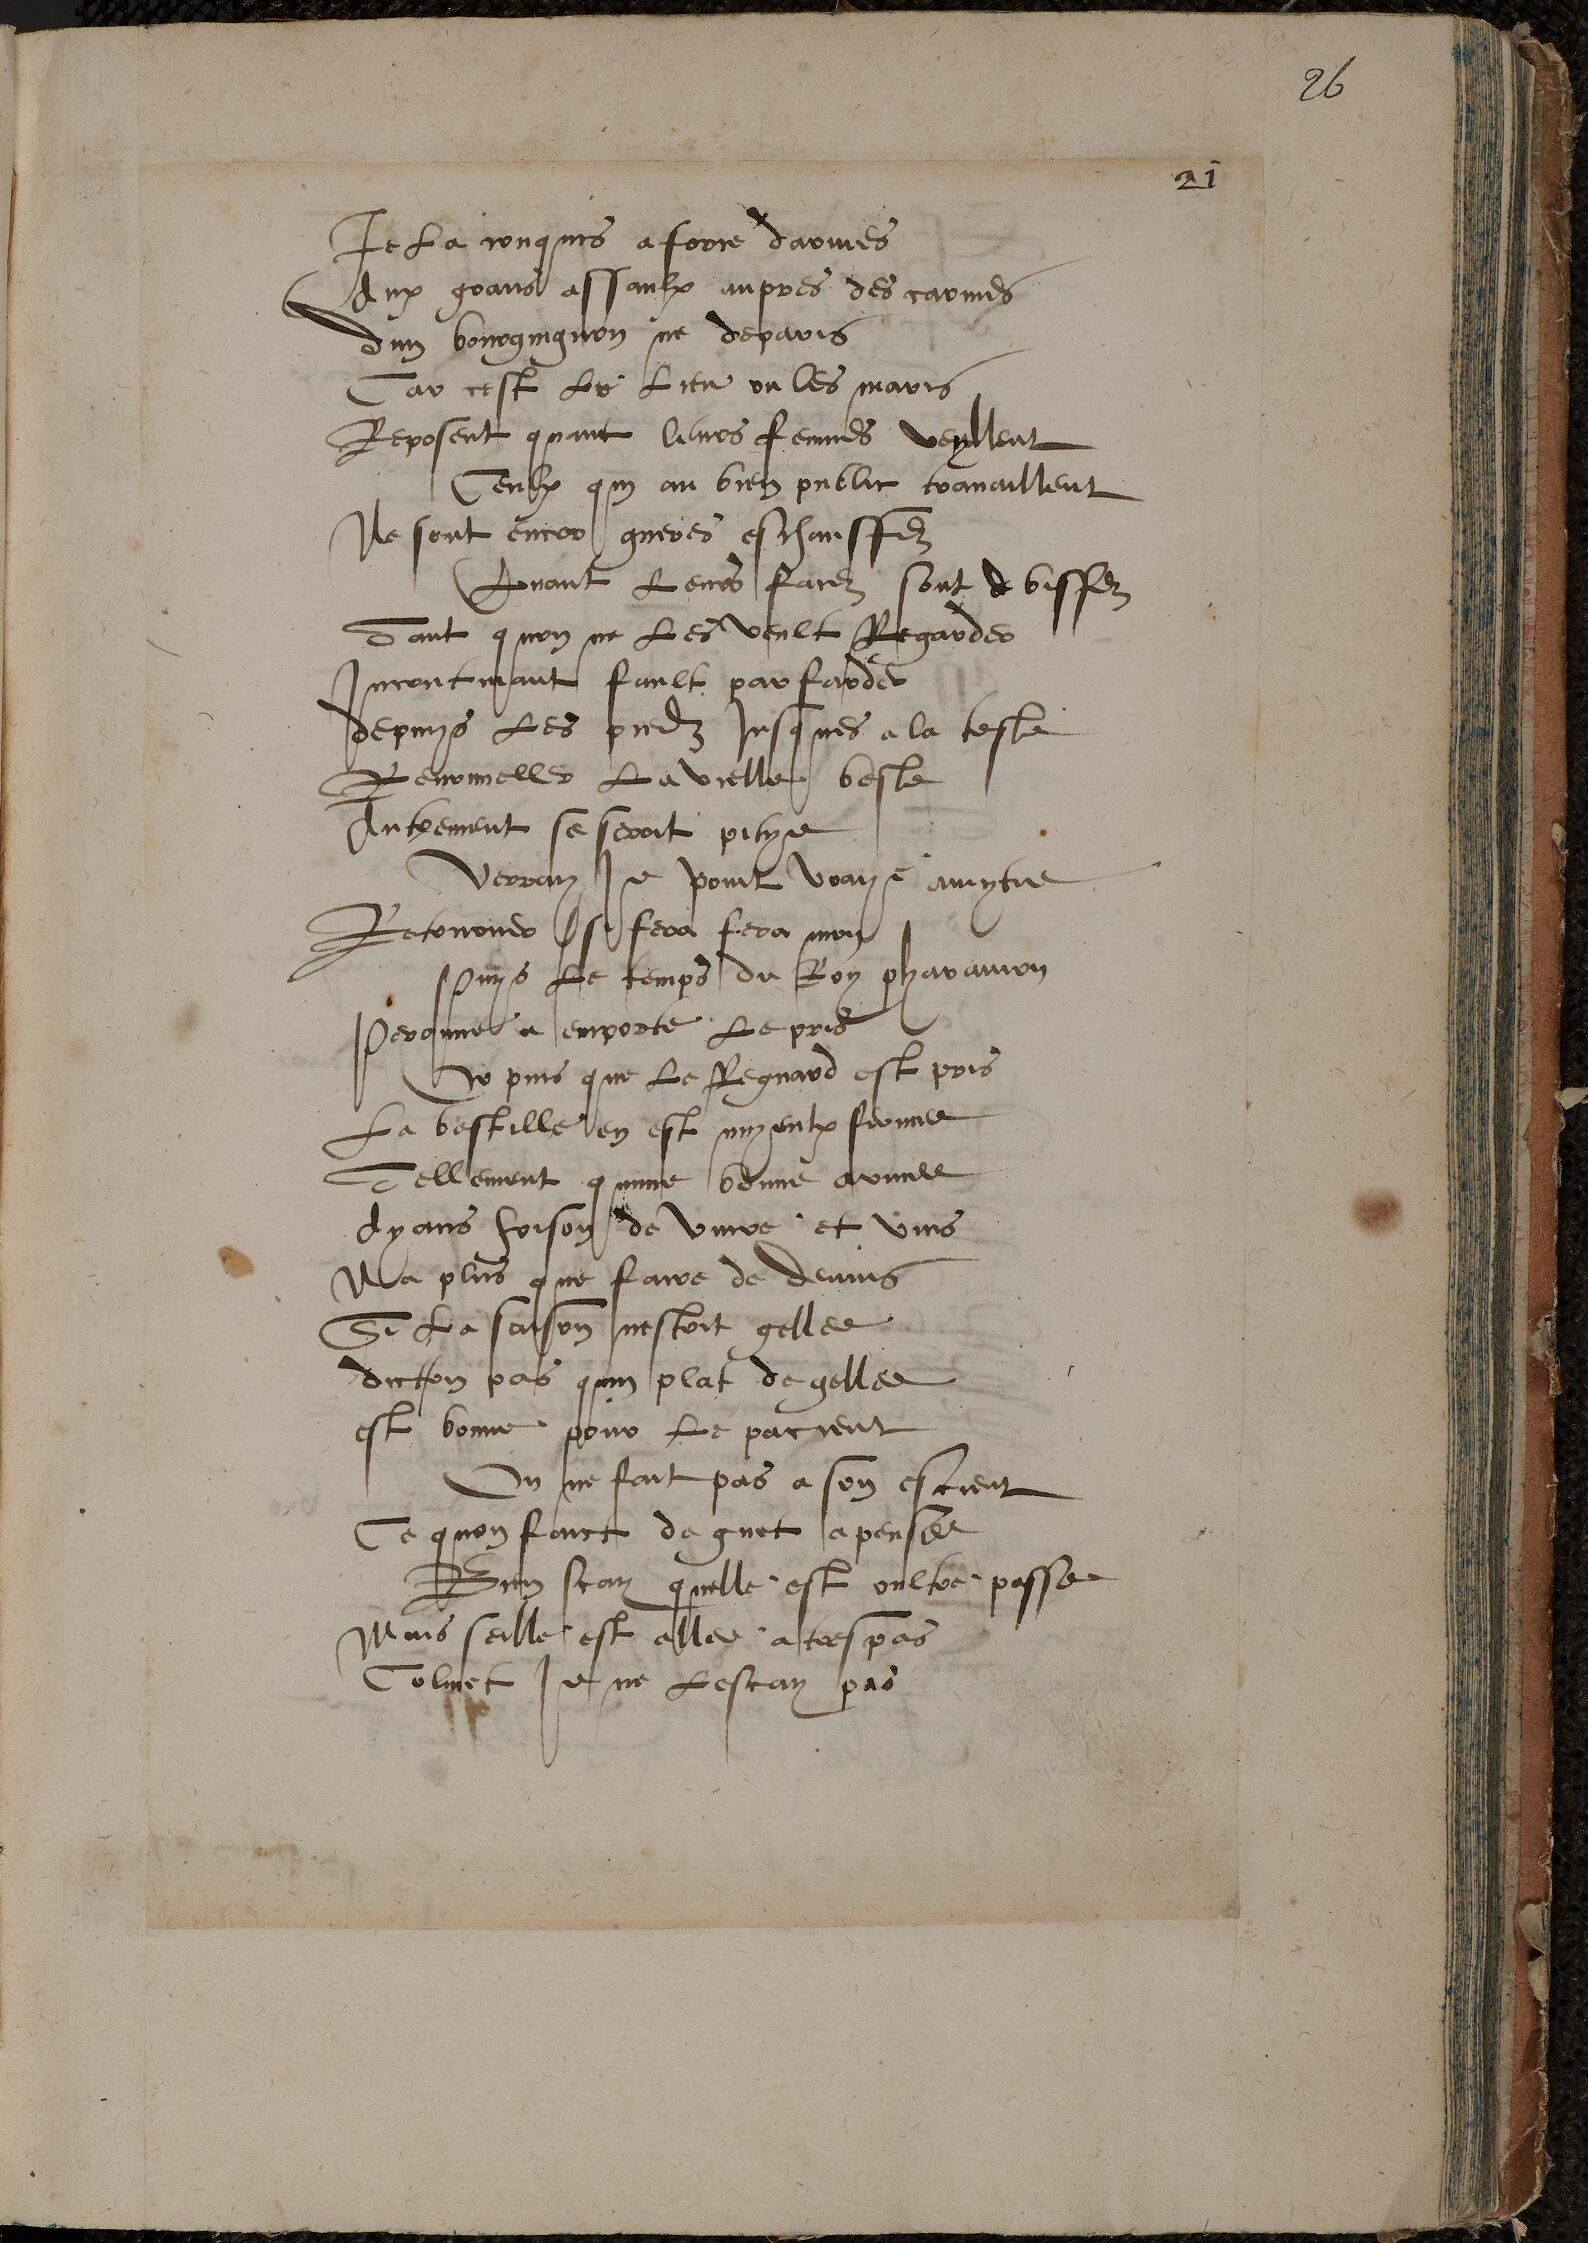 26
21
Je La conquis a force darmes
Aux grans assaulx aupres des carmes
Dung bourguignon ne deparis
Car cest Le Lieu ou les maris
Reposent quant leurs femmes veyllent
Ceulx qui au bien public travaillent
Ne sont encor gueres eschauffez
Quant Leurs facez sont de biffez
Tant quon ne Les veult Regarder
Incontinant fault par farder
depuys Les piedz Jusques a la teste
Renouveller La vielle beste
Autrement se seroit pitye
Verray Je point vraye amytie
Retourner si fera fera mon
Puys Le temps du Roy pharamon
Peronne a emporte Le pris
Or puis que Le Regnard est pris
La bestille en est myeulx fermee
Tellement qunne bonne armee
Ayans foison de vivre et vins
Na plus que faire de devins
Si La saison nestoit gellee
dicton pas qung plat de gellee
est bonne pour Le pacient
On ne fait pas a son escient
Ce quon faict de guet apensee
Bien scay quelle est oultre passee
Mais selle est allee a trespas
Colinet Je ne Le scay pas